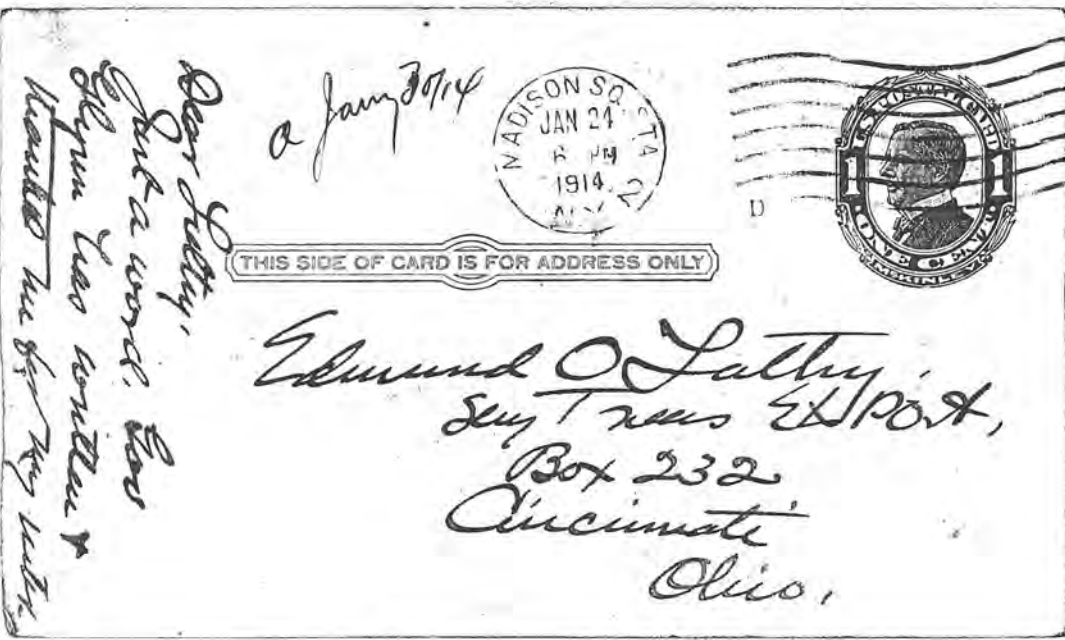 Dear Lathy,
Just a word. Gov
Glynn has written &
thanked me for my letter
a Jany 30/14
MADISON SQ. STA
JAN 24
PM
1914
N.Y.
D
1 1
ONE CENT
MCKINLEY
THIS SIDE OF CARD IS FOR ADDRESS ONLY
Edmund O Lathy,
Secy Treas
Box 232
Cincinnati
Ohio,